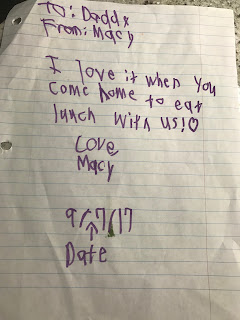 To: Daddy
From: Macy
I love it when you
come home to eat
lunch with us!♡
Love
Macy
9/7/17
↑
Date